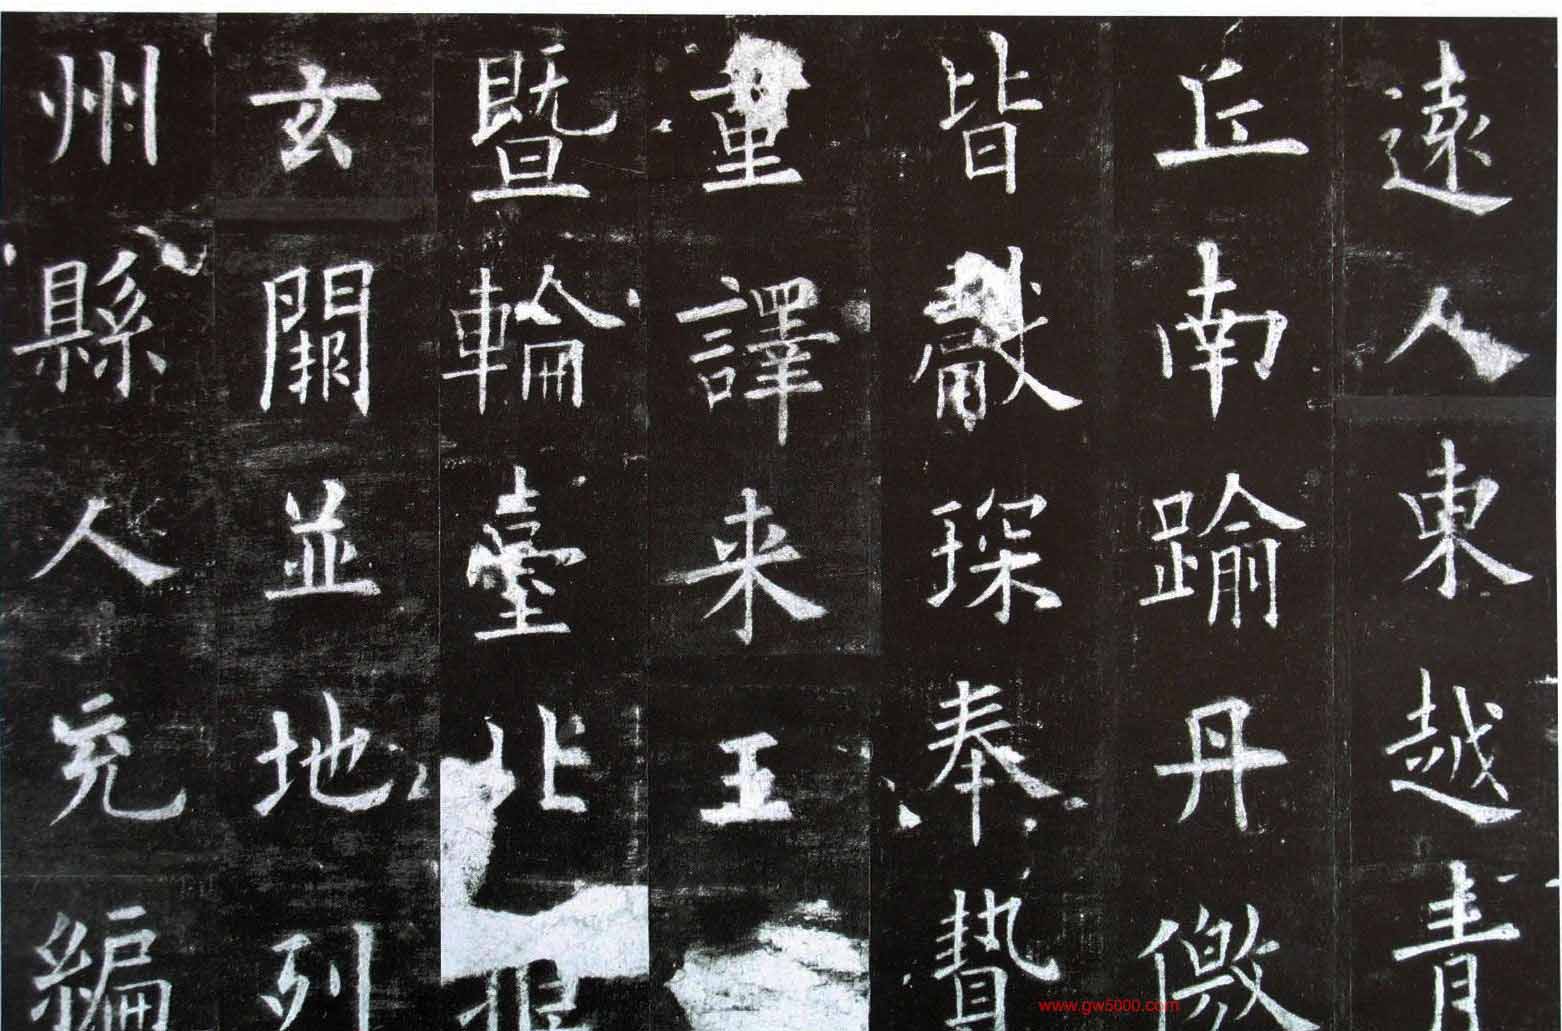 遠人東越青
丘南踰丹徼
皆獻琛奉贄
重譯来王
暨輪臺北拒
玄闕並地列
州縣人充編
www.gw5000.com